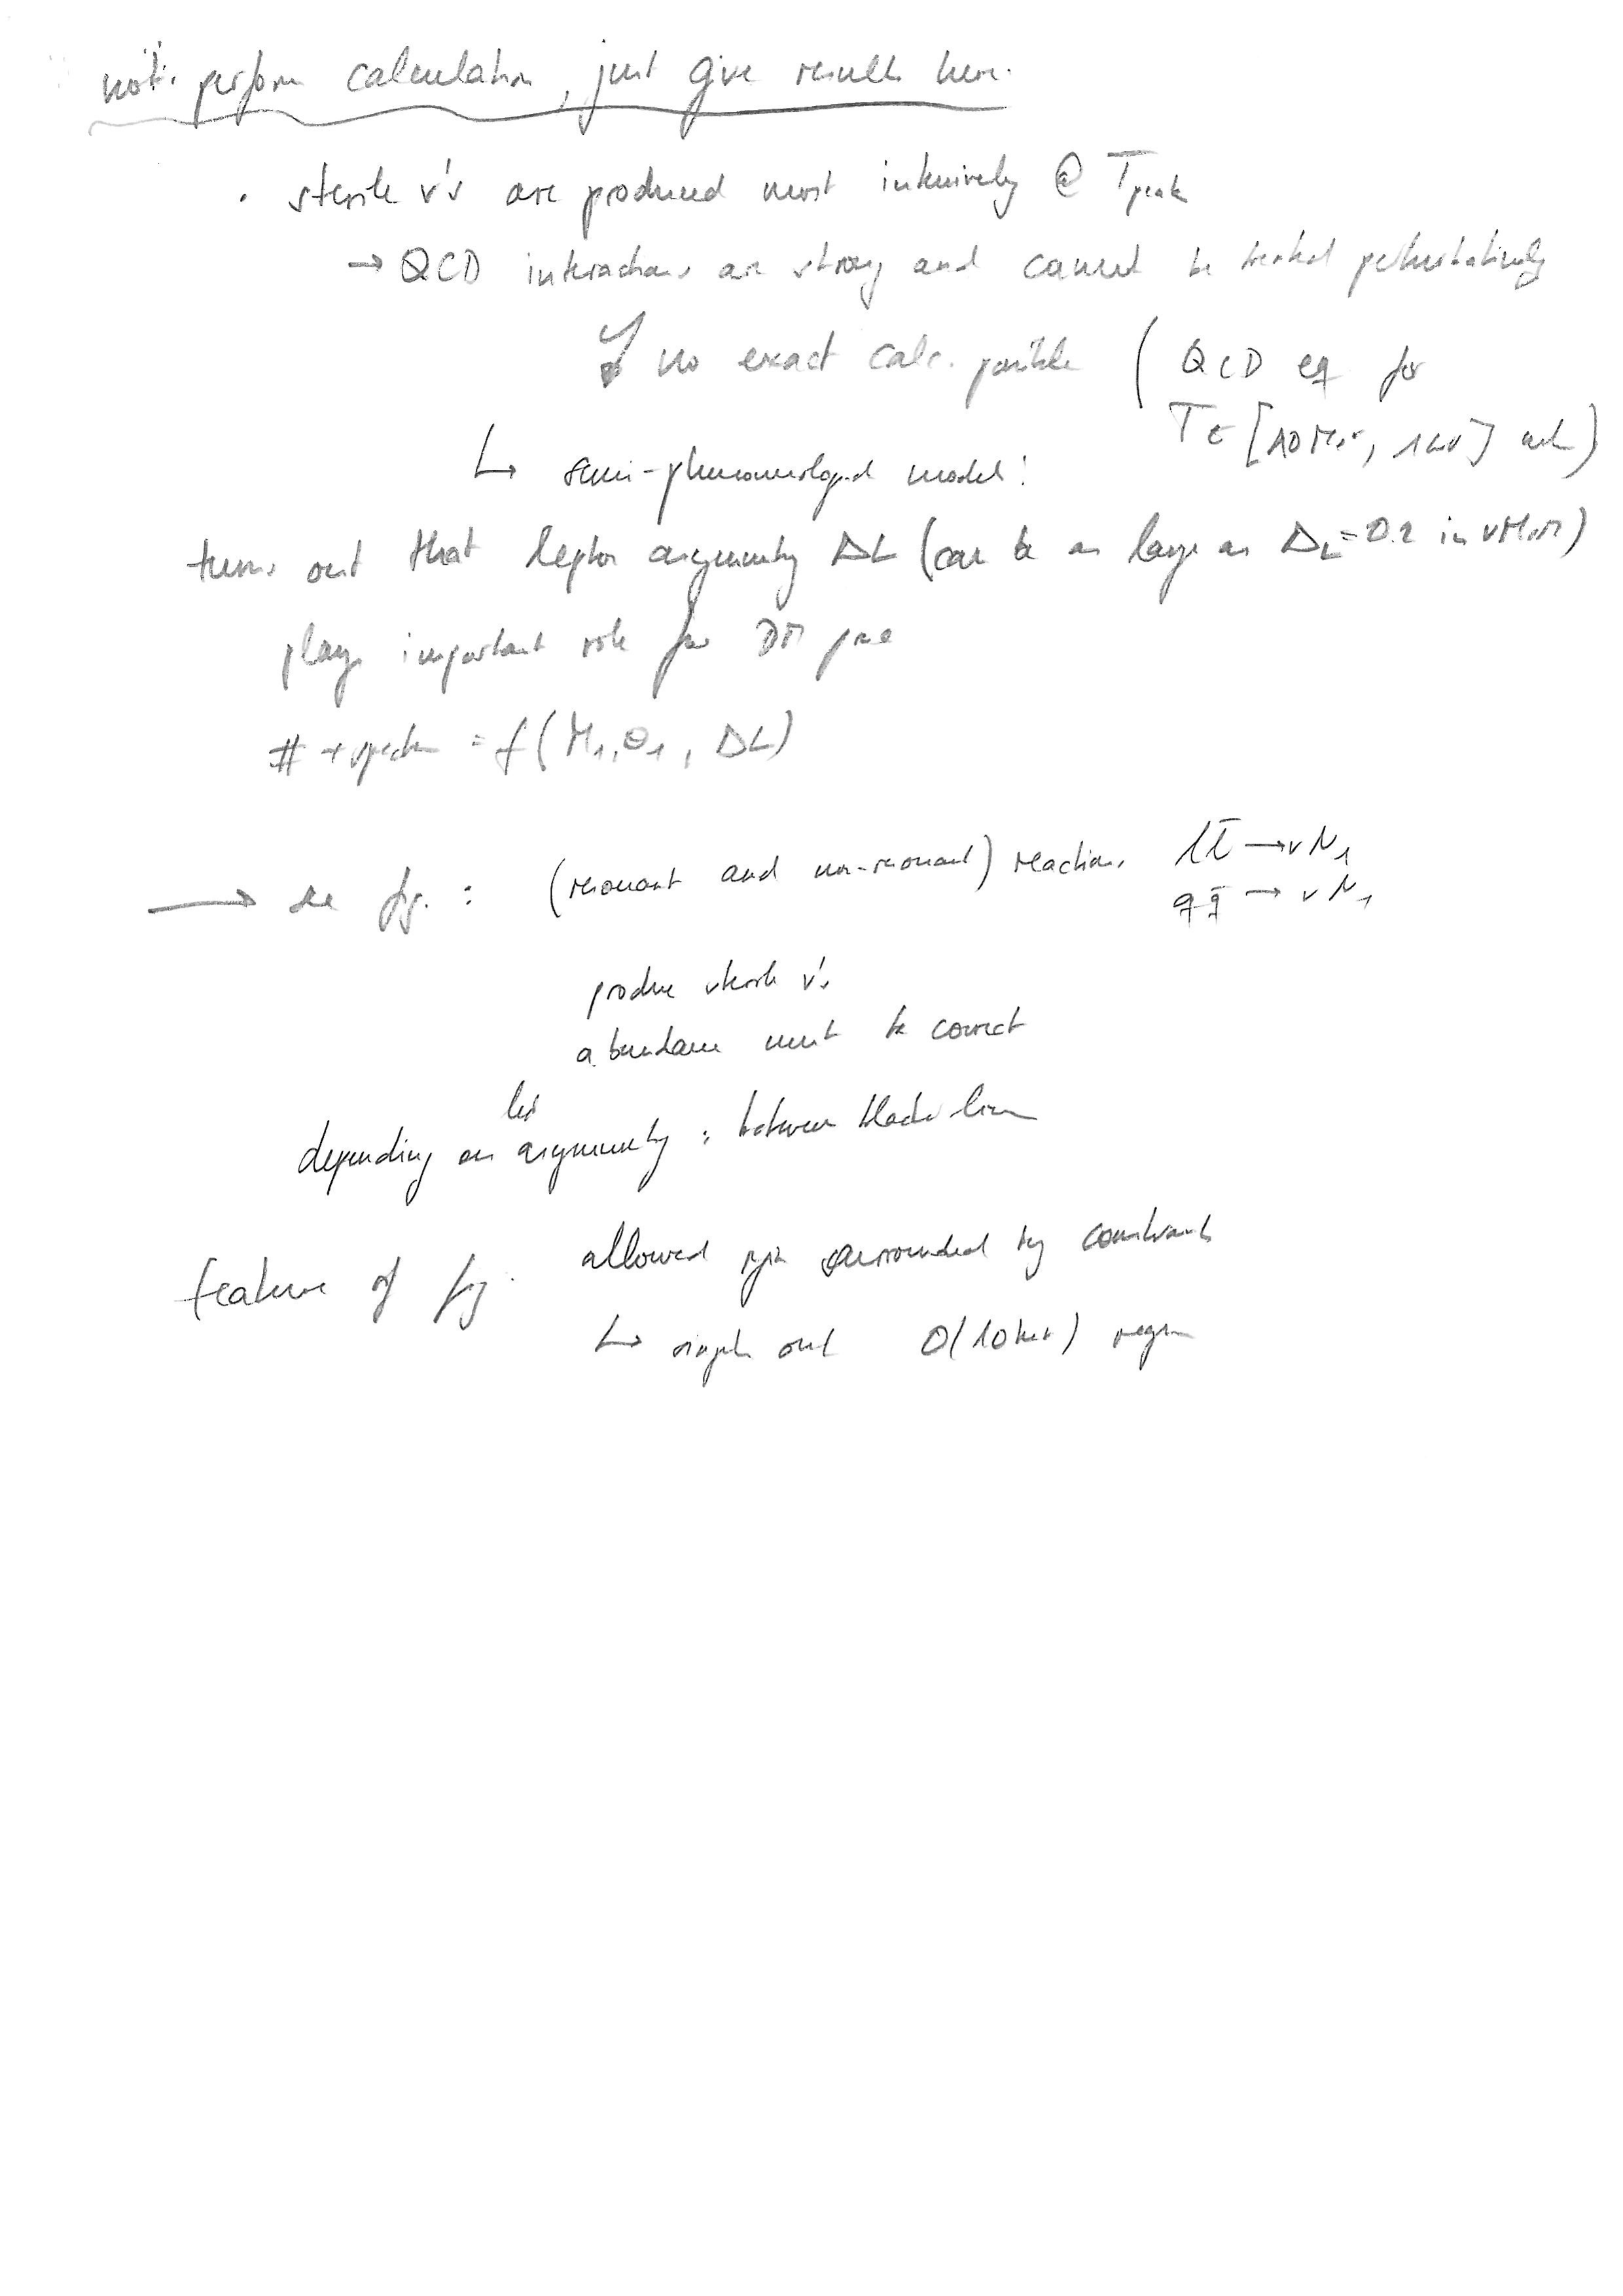 not: perform calculation, just give results here.
· sterile ν's are produced most intensively @ T_peak
→ QCD interactions are strong and cannot be treated perturbatively
no exact calc. possible ( QCD eq for
T ∈ [10 MeV, 1 GeV]
↳ semi-phenomenological model:
turns out that lepton asymmetry ΔL (can be as large as Δ_L = 0.2 in νMSM)
plays important role for DM
# + spectr = f(M₁, θ₁, ΔL)
→ see fig. : (resonant and non-resonant) reactions l l̄ → ν N₁
q q̄ → ν N₁
produce sterile ν's
abundance must be correct
depending on asymmetry : between black lines
feature of fig. allowed region surrounded by constraints
↳ single out O(10 keV) region